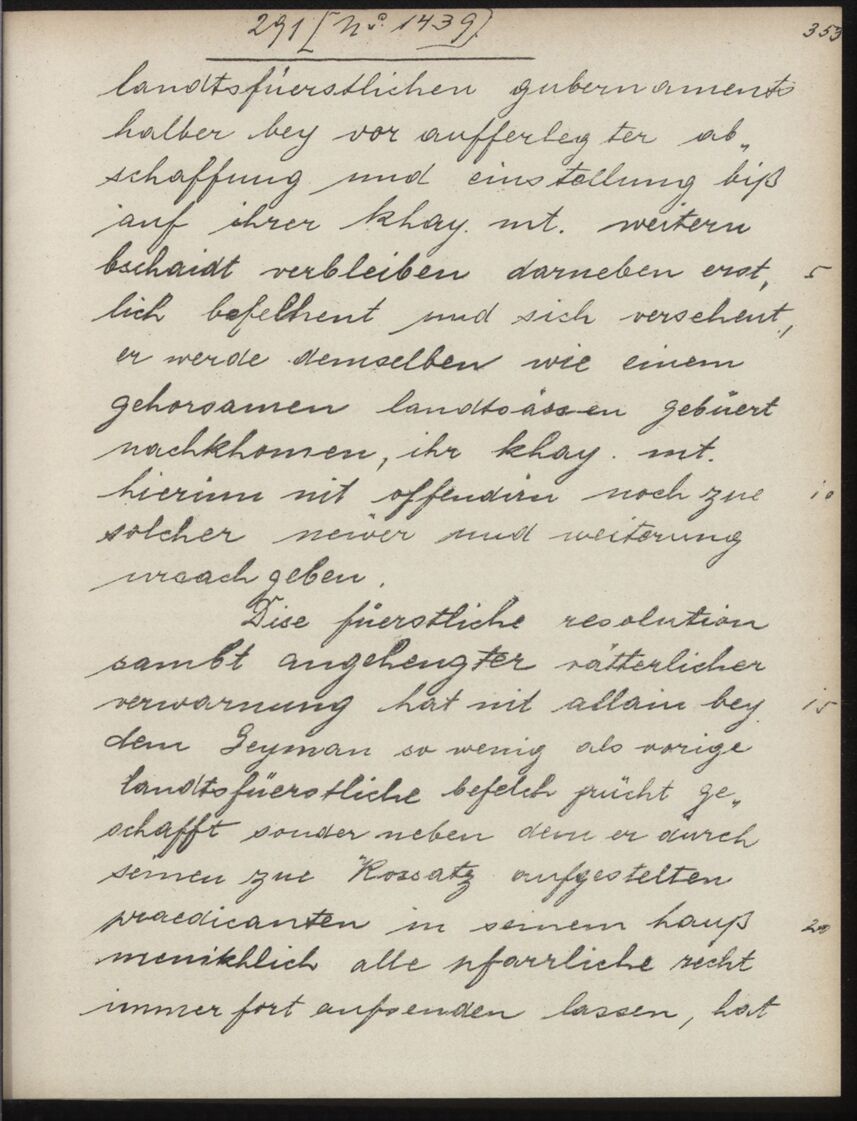 291 [N.º 1439]
353
landtsfüerstlichen gubernaments
halber bey vor aufferlegter ab„
schaffung und einstellung biß
auf ihrer khay. mt. weitern
bschaidt verbleiben darneben erst„ 5
lich befelhent und sich versehent,
er werde demselben wie einem
gehorsamen landtsässen gebüert
nachkhomen, ihr khay. mt.
hierinn nit offendirn noch zue 10
solcher neüer und weiterung
ursach geben.
Dise füerstliche resolution
sambt angehengter vätterlicher
verwarnung hat nit allain bey 15
dem Geyman so wenig als vorige
landtsfüerstliche befelch frücht ge„
schafft sonder neben dem er durch
seinen zue Rossatz aufgestelten
praedicanten in seinem hauß 20
menikhlich alle pfarrliche recht
immerfort aufsenden lassen, hat